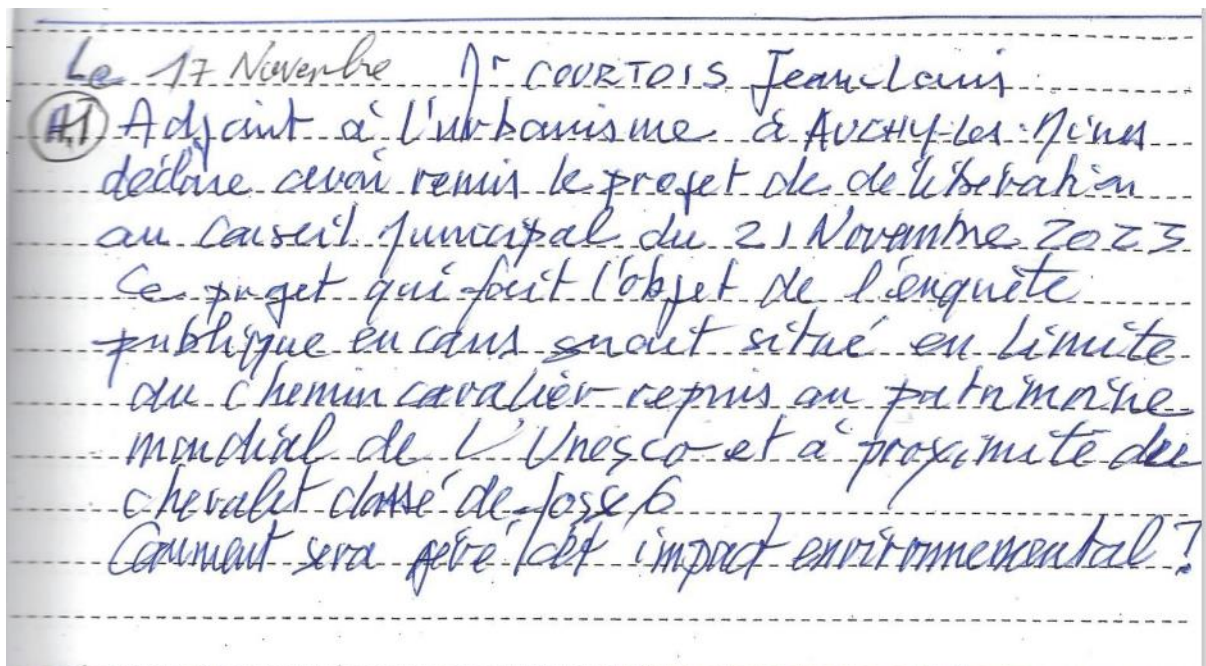 Le 17 Novembre Mr COURTOIS Jean-Louis
A1 Adjoint à l'urbanisme à AUCHY-Les-Mines
déclare avoir remis le projet de délibération
au Conseil Municipal du 21 Novembre 2023
Ce projet qui fait l'objet de l'enquête
publique en cours serait situé en limite
du chemin cavalier repris au patrimoine
mondial de L'Unesco et à proximité du
chevalet classé de fosse 6
Comment sera géré cet impact environnemental ?